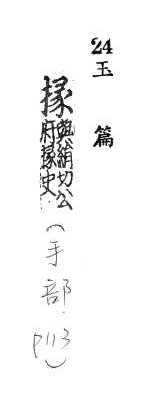 24
玉篇
掾與絹切公府掾史
(手部.P113)